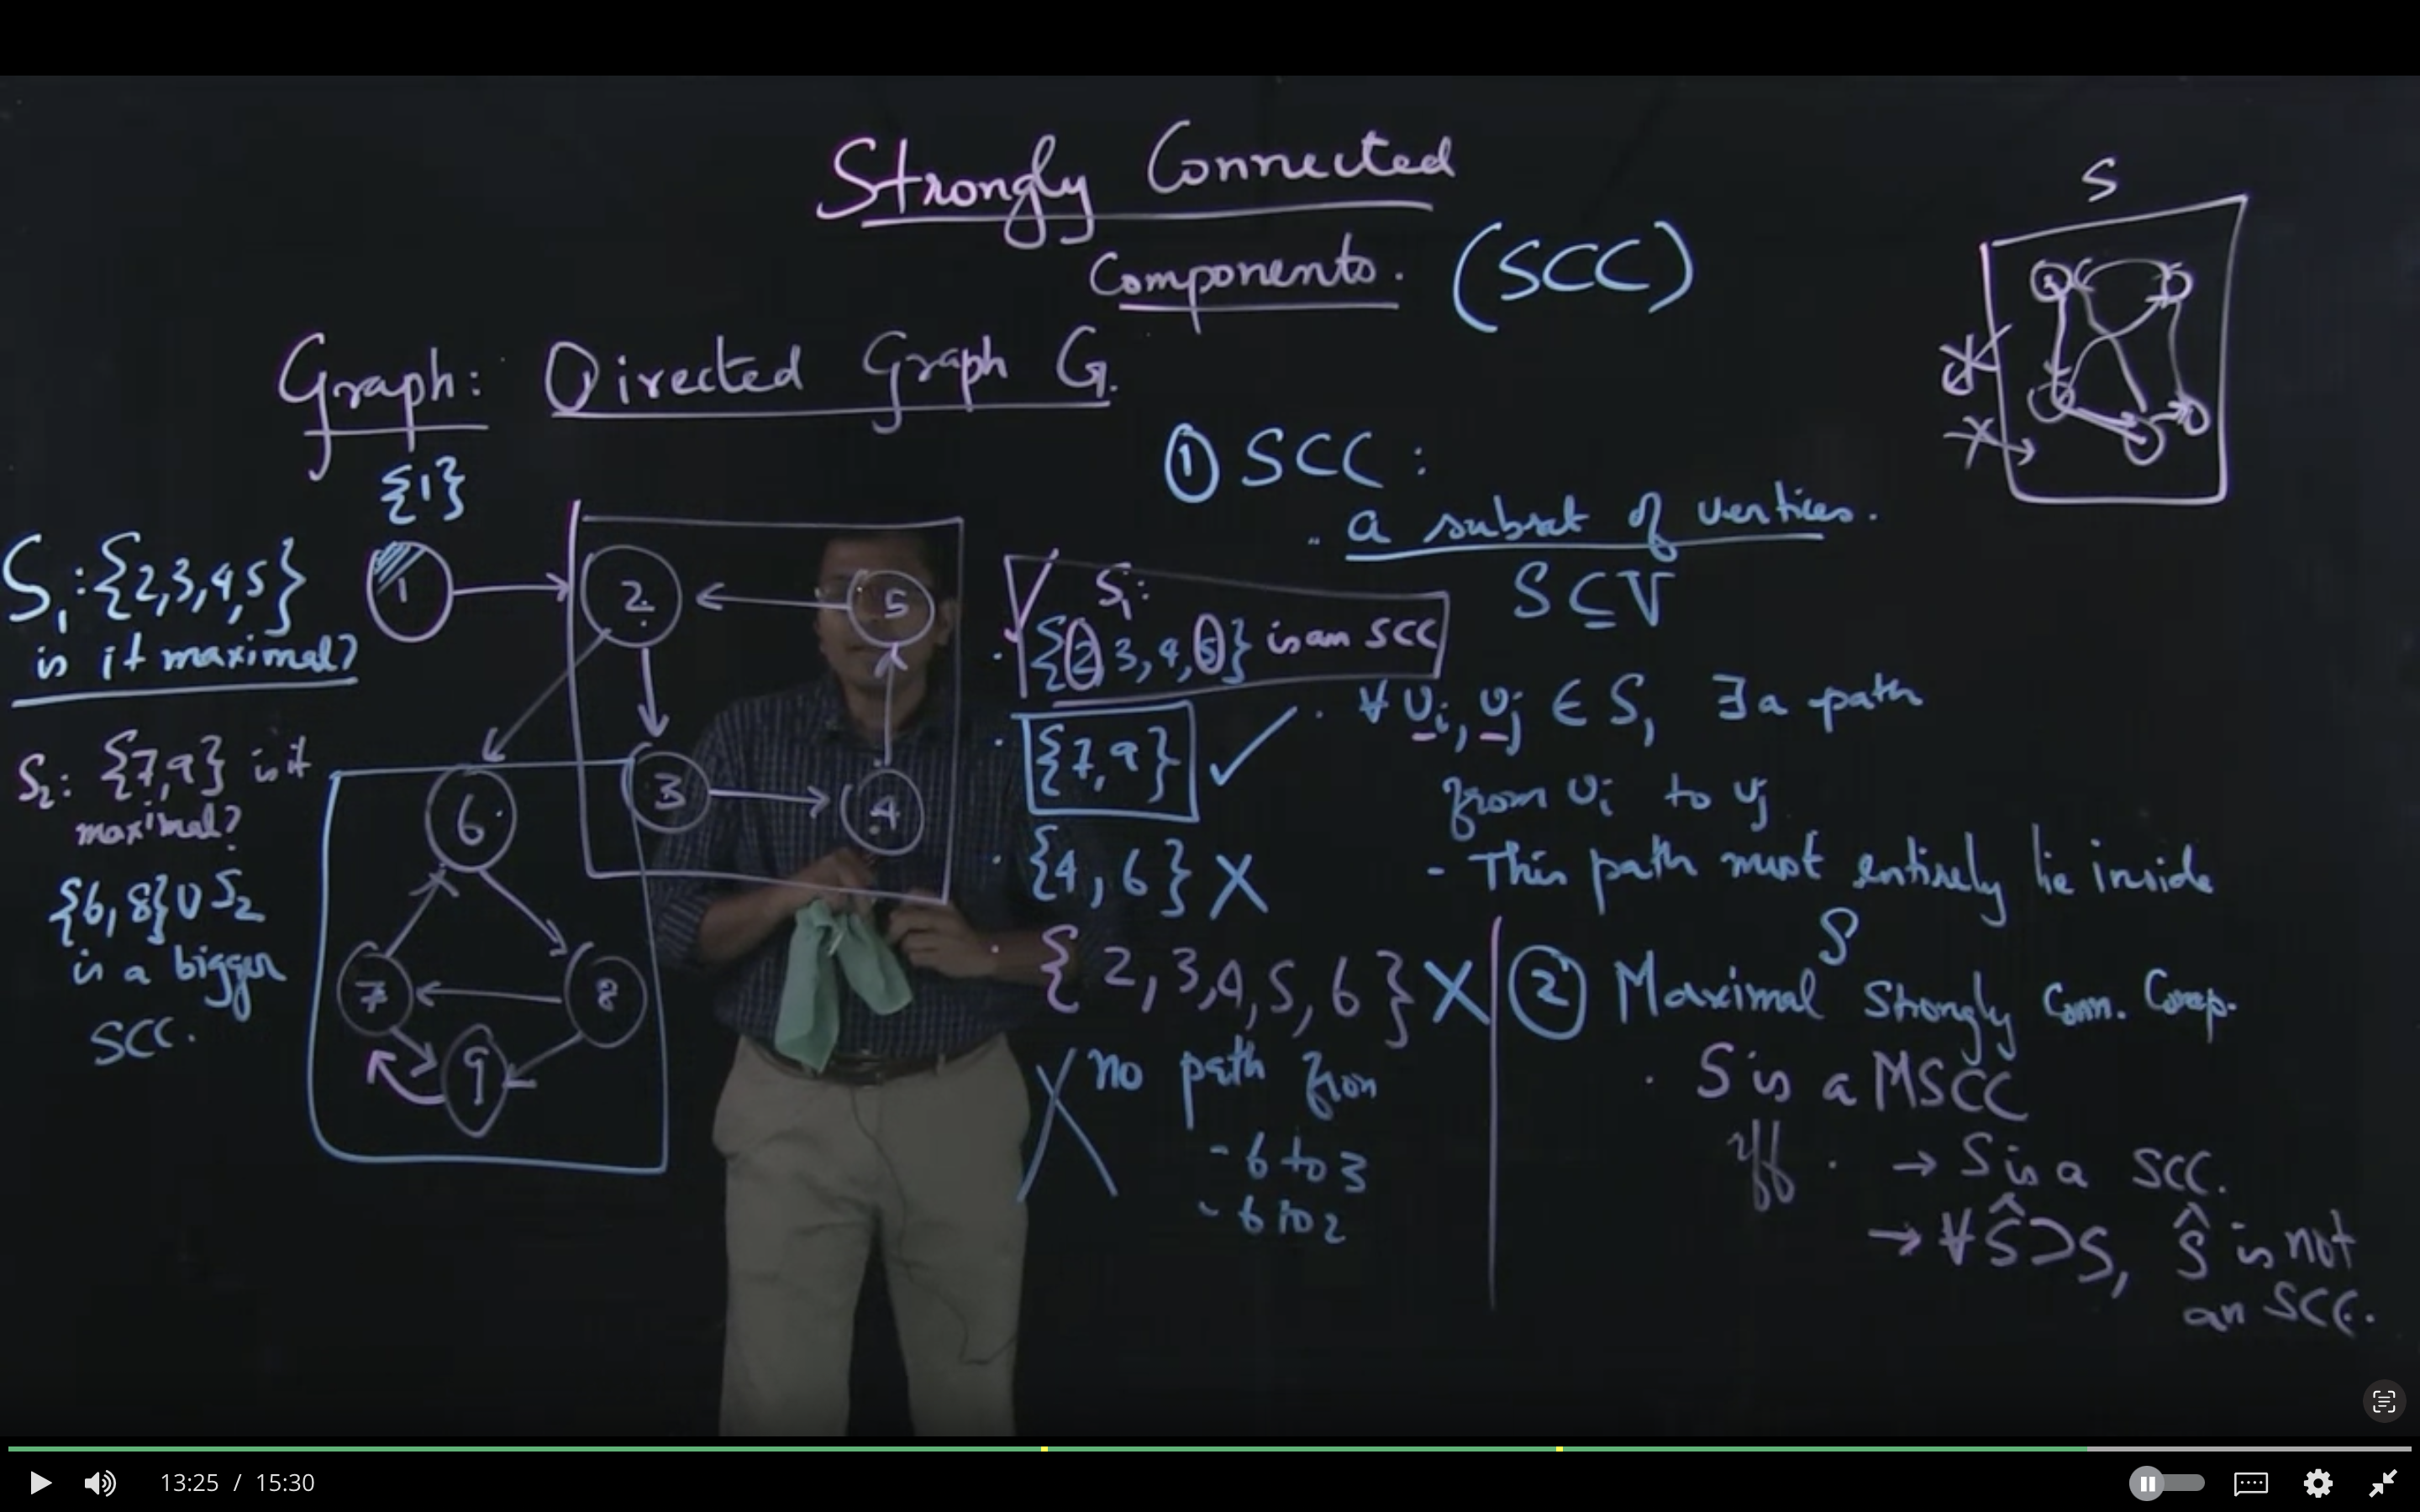 Strongly Connected
Components. (SCC)
S
Graph: Directed Graph G.
{1}
S₁: {2,3,4,5}
is it maximal?
S₂: {7,9} is it
maximal?
{6,8} ∪ S₂
is a bigger
SCC.
1
2
5
3
4
6
7
8
9
① SCC:
a subset of vertices.
S ⊆ V
S₁:
{2,3,4,5} is an SCC
{7,9} ✓
{4,6} X
{2,3,4,5,6} X
X no path from
- 6 to 3
- 6 to 2
∀ vᵢ, vⱼ ∈ S, ∃ a path
from vᵢ to vⱼ
- This path must entirely lie inside
S
② Maximal Strongly Conn. Comp.
S is a MSCC
iff → S is a SCC.
→ ∀ Ŝ ⊃ S, Ŝ is not
an SCC.
13:25 / 15:30